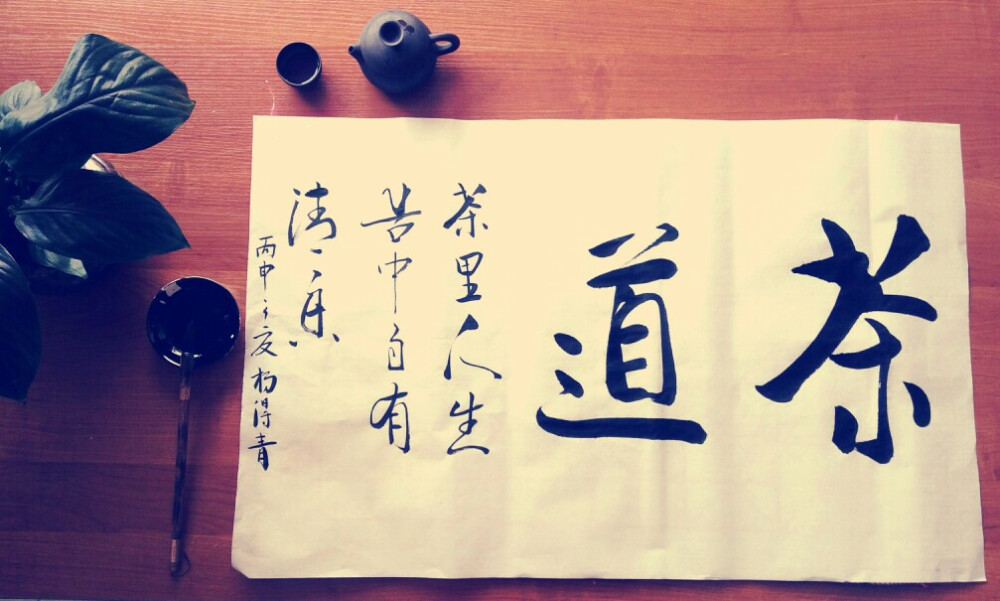 茶道
茶里人生
苦中自有
清乐
丙申之夏杨得青